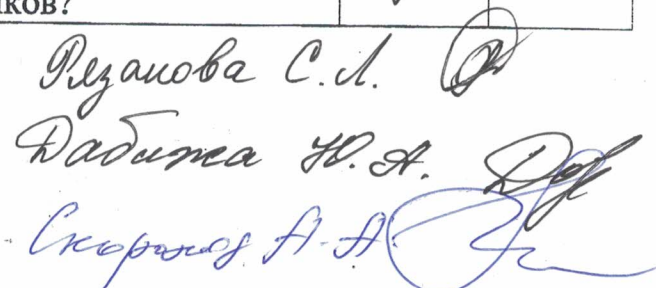 ков?
Рязанова С.Л.
Дабижа Ю.А.
Скороход А.А.